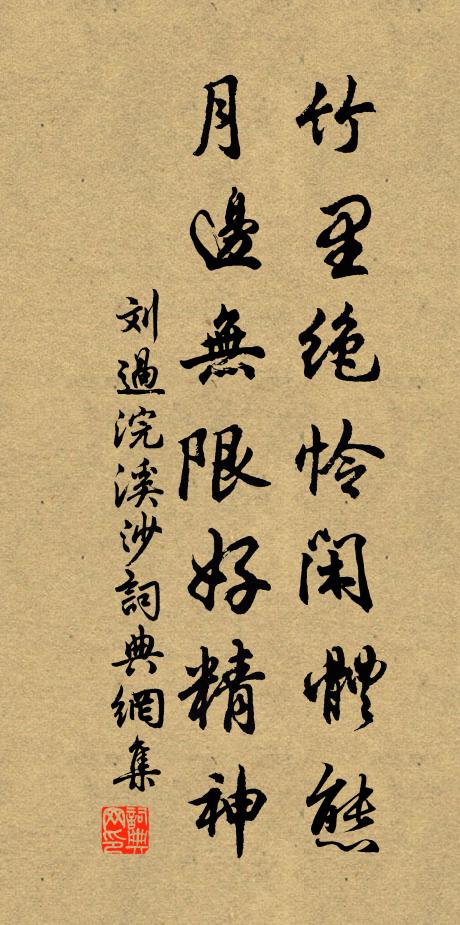 竹里绝怜闲體態
月邊無限好精神
刘過浣溪沙詞典網集
詞典网印